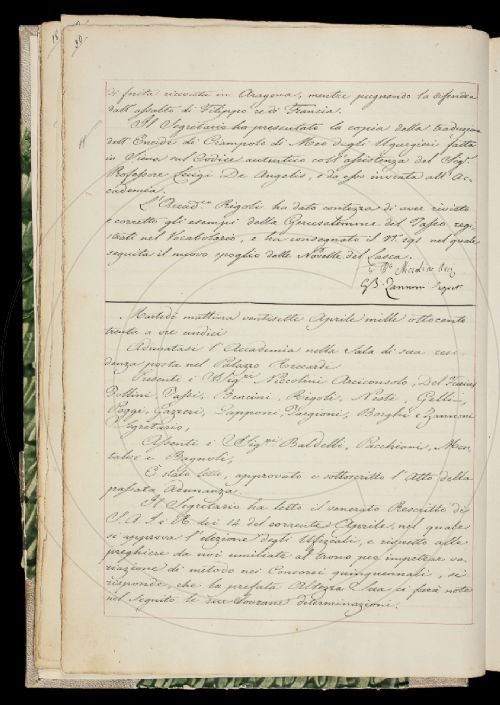 di ferita ricevuta in Aragona, mentre pugnando la difendea
dall'assalto di Filippo re di Francia.
Il Segretario ha presentato la copia della traduzione
dell'Eneide di Ciampolo di Meo degli Ugurgieri fatta
in Siena sul Codice autentico coll'assistenza del Sig.
Professore Luigi De Angelis, e da esso inviata all'Ac-
cademia.
L'Accad.co Rigoli ha dato contezza di aver rivisto
e corretto gli esempi della Gerusalemme del Tasso regi-
strati nel Vocabolario, e ha consegnato il N. nel quale
seguita il nuovo spoglio delle Novelle del Lasca.
G. B. Zannoni Segret.
Martedì mattina ventisette Aprile mille ottocento
trenta a ore undici
Adunatasi l'Accademia nella Sala di sua resi-
denza posta nel Palazzo Riccardi
Presenti i Sigg.ri Niccolini Arciconsolo, Del Furia,
Follini, Tassi, Bencini, Rigoli, Nesti, Gelli,
Poggi, Gazzeri, Capponi, Targioni, Borghi e Zannoni
Segretario,
Assenti i Sigg.ri Baldelli, Pacchiani, Mon-
talvi e Bagnoli,
È stato letto, approvato e sottoscritto l'Atto della
passata Adunanza.
Il Segretario ha letto il venerato Rescritto di
S. A. I. e R. dei 14 del corrente Aprile, nel quale
si approva l'elezione degli Ufiziali, e rispetto alle
preghiere da noi umiliate al trono per impetrar va-
riazione di metodo nei Concorsi quinquennali, si
risponde, che la prefata Altezza Sua ci farà note
nel seguito le sue sovrane determinazioni.